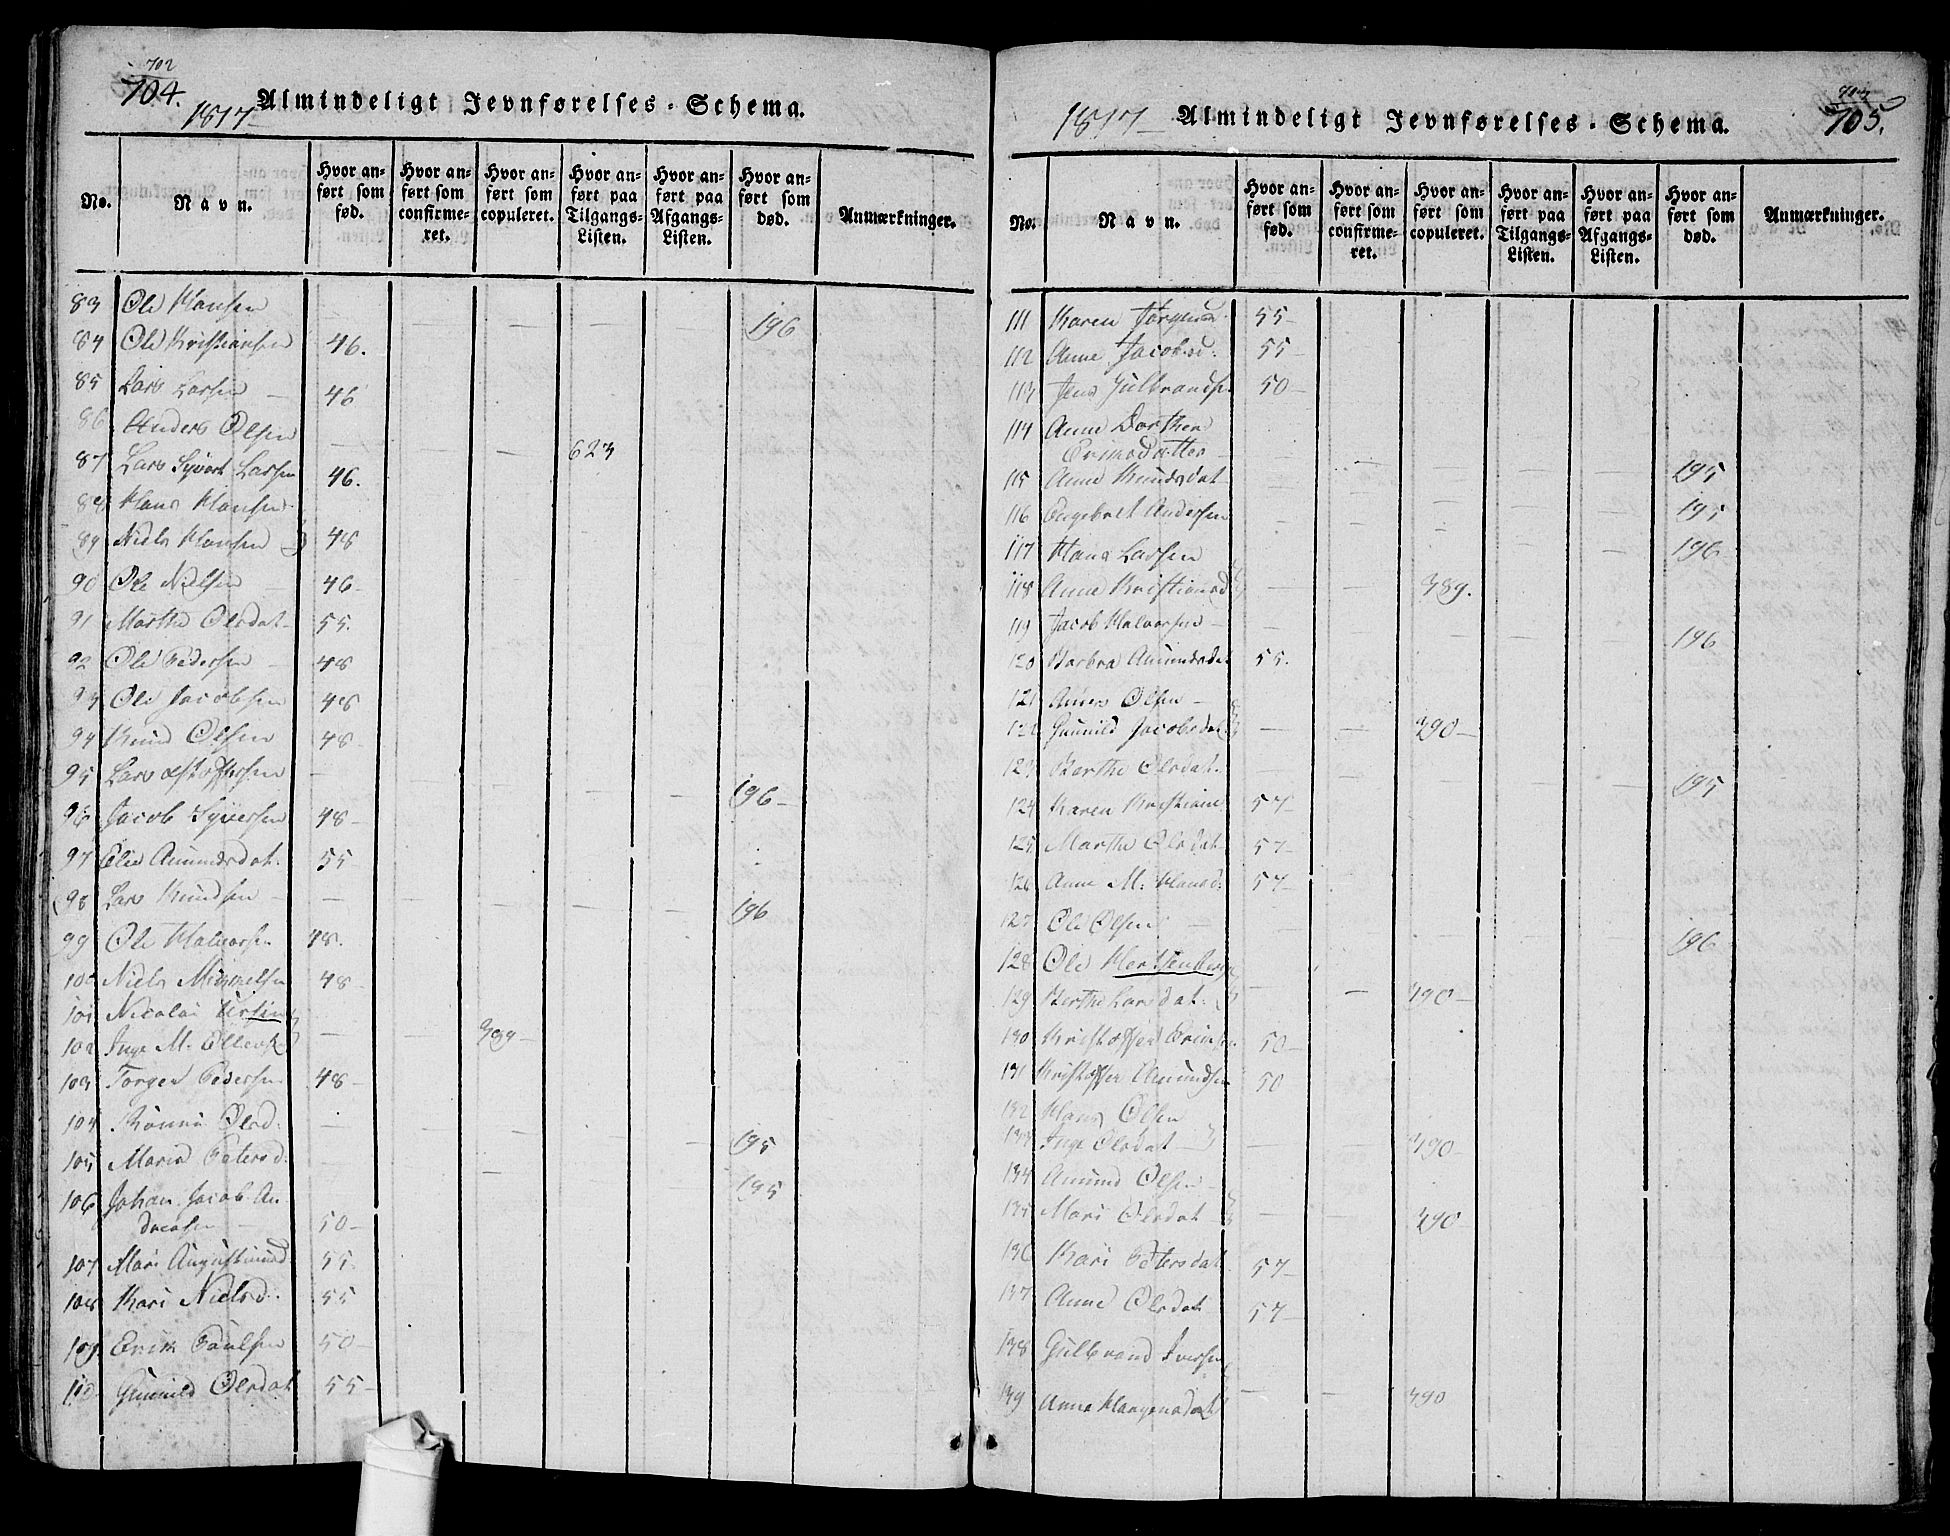 702
704.
1817 Almindeligt Jevnførelses-Schema.
No.
Navn.
Hvor anført som fød.
Hvor anført som confirmeret.
Hvor anført som copuleret.
Hvor anført paa Tilgangs-Listen.
Hvor anført paa Afgangs-Listen.
Hvor anført som død.
Anmærkninger.
83 Ole Hansen 196
84 Ole Kristiansen 46.
85 Lars Larsen 46
86 Anders Olsen 623
87 Lars Syvert Larsen 46.
88 Hans Hansen
89 Niels Hansen 48
90 Ole Nielsen 46-
91 Marthe Olsdat- 55.
92 Ole Pedersen - 48
93 Ole Jacobsen 48
94 Knud Olsen 48-
95 Lars 196-
96 Jacob Syversen 48-
97 Elie Amundsdat. 55
98 Lars Knudsen - 196
99 Ole Halvorsen 48.
100 Niels Mikkelsen 48-
101 Nicolai
102 Inge M. 389-
103 Torger Pedersen 48-
104 Olsd. 195
105 Maria Petersd. 195
106 Johan Jacob An
dreasen 50-
107 Mari 55.
108 Kari Nielsd. 55
109 Erik Paulsen 50-
110 Gunnild Olsdat 55-
703
705.
1817- Almindeligt Jevnførelses-Schema.
No.
Navn.
Hvor anført som fød.
Hvor anført som confirmeret.
Hvor anført som copuleret.
Hvor anført paa Tilgangs-Listen.
Hvor anført paa Afgangs-Listen.
Hvor anført som død.
Anmærkninger.
111 Karen 55-
112 Anne Jacobsd: 55-
113 Jens Gulbrandsen 50-
114 Anne Dorthea
Eriksdatter - 195
115 Anne Knudsdat 195
116 Engebret Andersen 196-
117 Hans Larsen
118 Anne Kristiansd 389.
119 Jacob Halvorsen - 196
120 Barbra Amundsdat 55.
121 Anders Olsen -
122 Gunnild Jacobsdat 390-
123 Berthe Olsdat. 195
124 Karen Kristians 57-
125 Marthe Olsdat 57-
126 Anne M: Hansd: 57-
127 Ole Olsen 196
128 Ole
129 Berthe Larsdat. 390-
130 Kristoffer Eriksen 50-
131 Kristoffer Amundsen 50
132 Hans Olsen
133 Inge Olsdat - 390-
134 Amund Olsen -
135 Mari Olsdat - 390-
136 Kari Petersdat 57-
137 Anne Olsdat 57-
138 Gulbrand Iversen
139 Anne Haagensdat 390